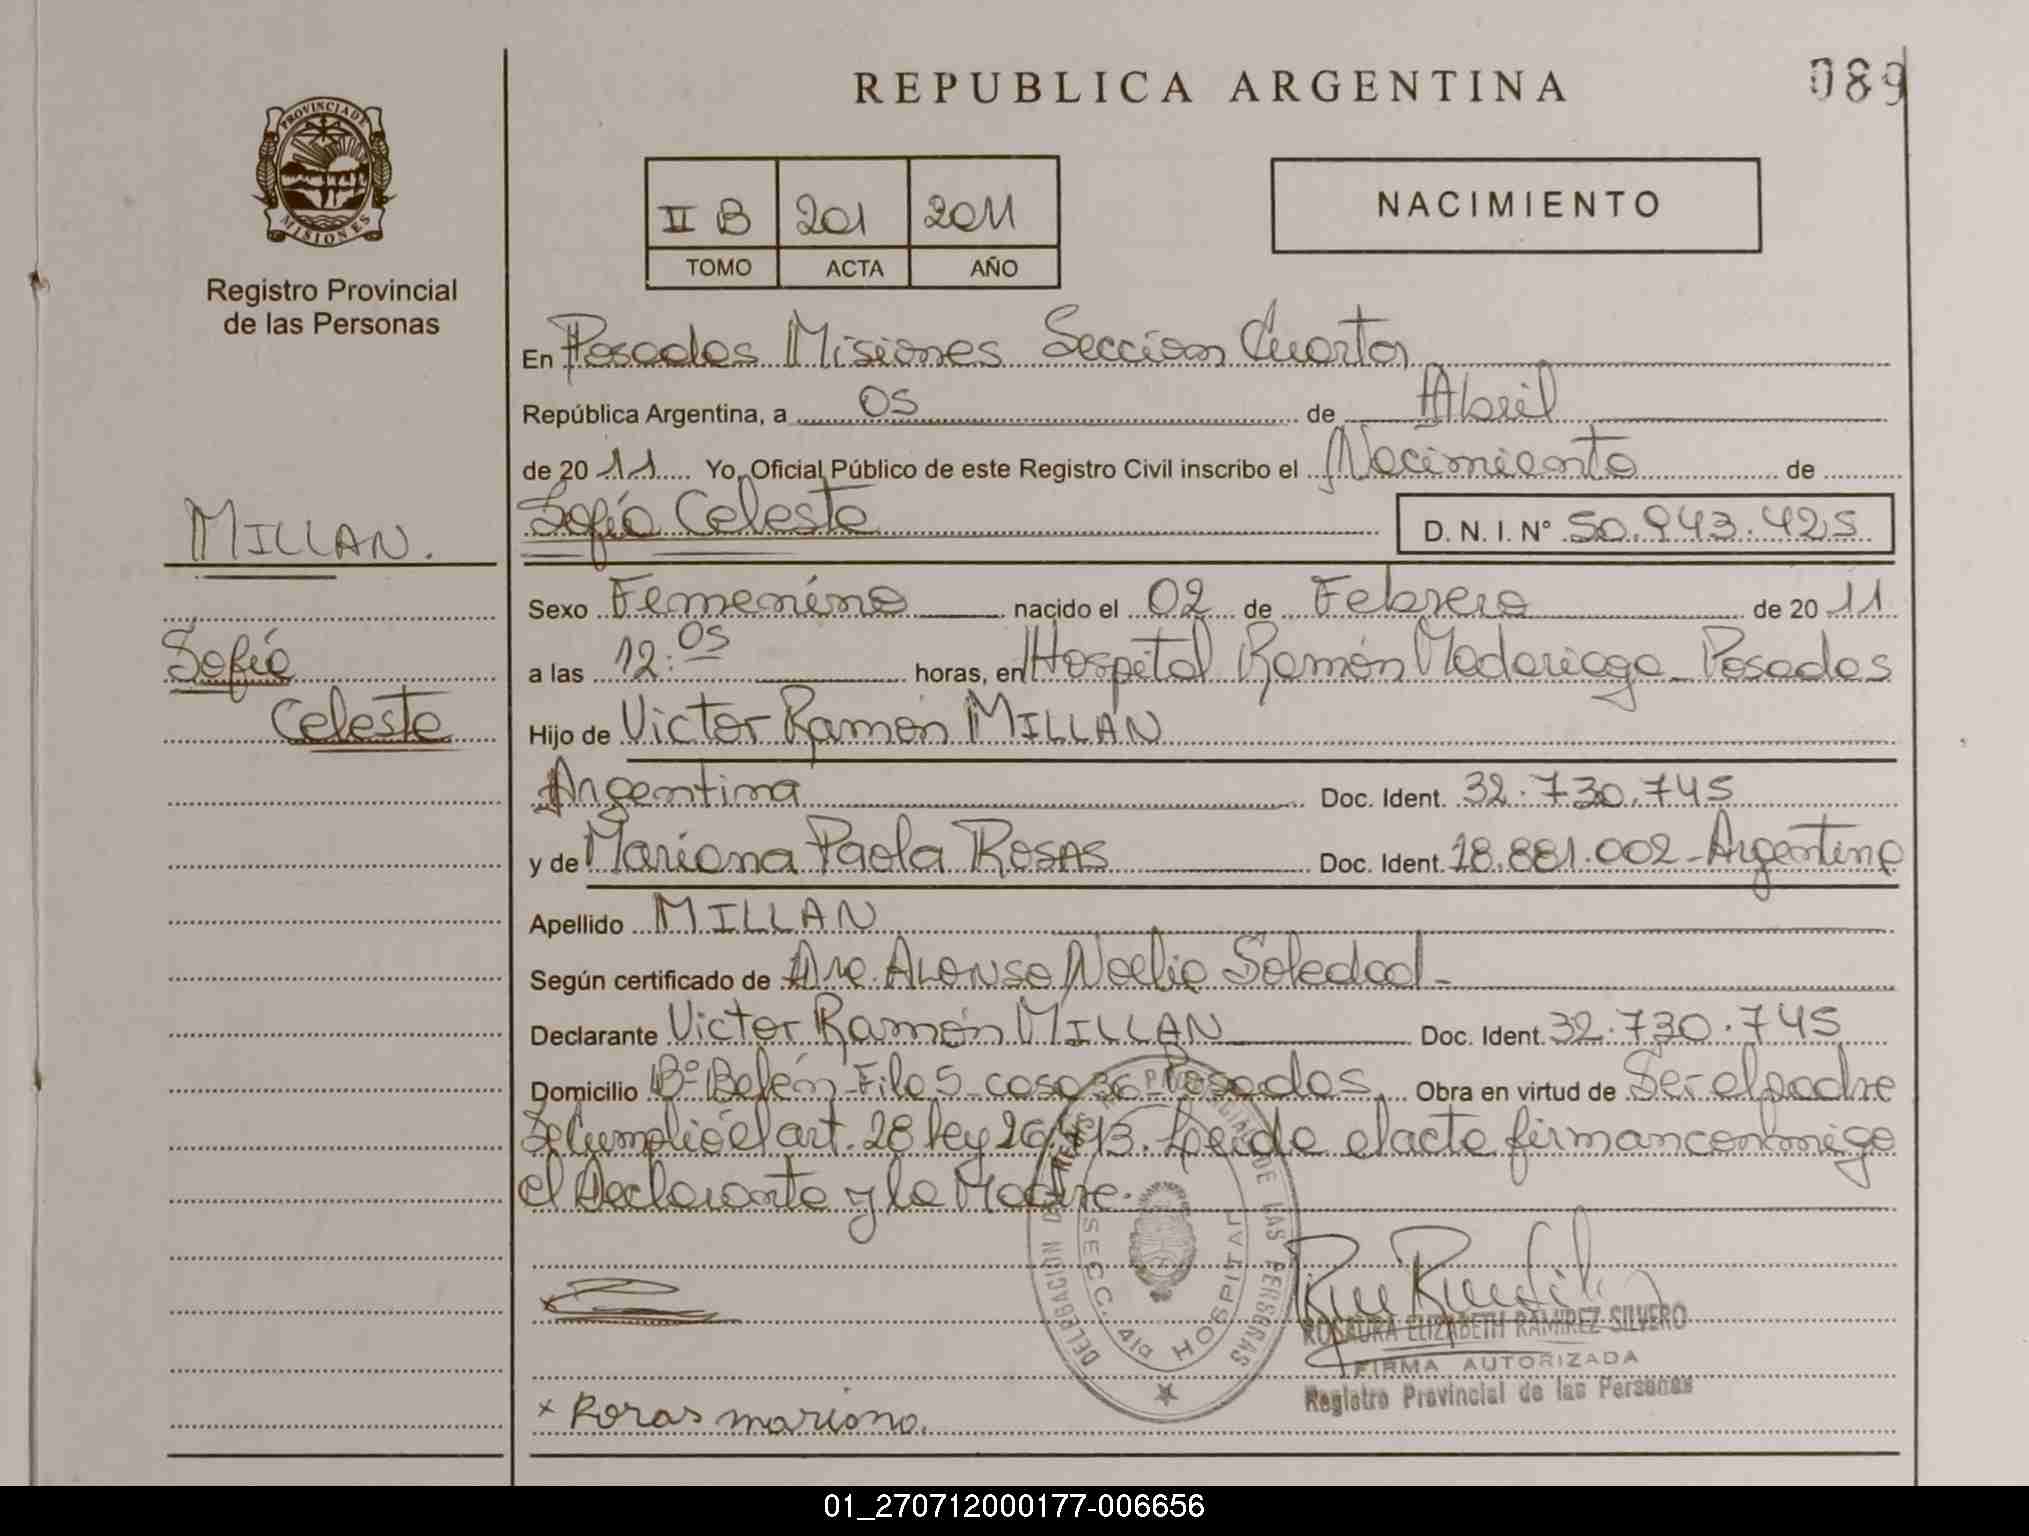 REPUBLICA ARGENTINA
089
PROVINCIA DE MISIONES
Registro Provincial
de las Personas
II B 201 2011
TOMO ACTA AÑO
NACIMIENTO
En Posadas Misiones Seccion Cuarta
República Argentina, a 05 de Abril
de 2011 Yo, Oficial Público de este Registro Civil inscribo el Nacimiento de
MILLAN.
Sofía Celeste D. N. I. N° 50.943.425
Sexo Femenino nacido el 02 de Febrero de 2011
Sofía
Celeste
a las 12:05 horas, en Hospital Ramón Madariaga - Posadas
Hijo de Victor Ramón MILLAN
Argentina Doc. Ident. 32.730.745
y de Mariana Paola ROSAS Doc. Ident. 18.881.002 - Argentina
Apellido MILLAN
Según certificado de Dra. ALONSO Noelia Soledad -
Declarante Victor Ramón MILLAN Doc. Ident. 32.730.745
Domicilio B° Belén - Fila 5 - casa 36 - Posadas Obra en virtud de Ser el padre
Se Cumplió el art. 28 ley 26.413. Leída el acta firman conmigo
el Declarante y la Madre.
DELEGACIÓN DEL REGISTRO PROVINCIAL DE LAS PERSONAS
SECC. 4ta HOSPITAL
ROSAURA ELIZABETH RAMIREZ SILVERO
FIRMA AUTORIZADA
Registro Provincial de las Personas
x Rosas mariana.
01_270712000177-006656